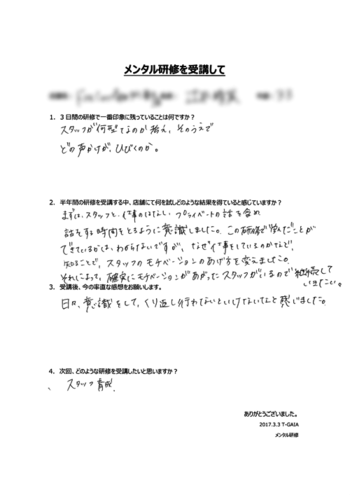 メンタル研修を受講して
1．３日間の研修で一番印象に残っていることは何ですか？
スタッフが何型なのか考え、そのうえで
どの声かけが、ひびくのか。
2．半年間の研修を受講する中、店舗にて何を試しどのような結果を得ていると感じていますか？
まずは、スタッフと、仕事のはなし、プライベートの話を含め
話をする時間をとるように意識しました。この研修で学んだことが
できているかは、わからないですが、なぜ仕事をしているのかなど、
知ることで、スタッフのモチベーションのあげ方を変えました。
それによって、確実にモチベーションがあがったスタッフがいるので継続して
いきたい。
3．受講後、今の率直な感想をお願いします。
日々、意識をして、くり返し行わないといけないなと感じました。
4．次回、どのような研修を受講したいと思いますか？
、スタッフ育成
ありがとうございました。
2017.3.3 T-GAIA
メンタル研修